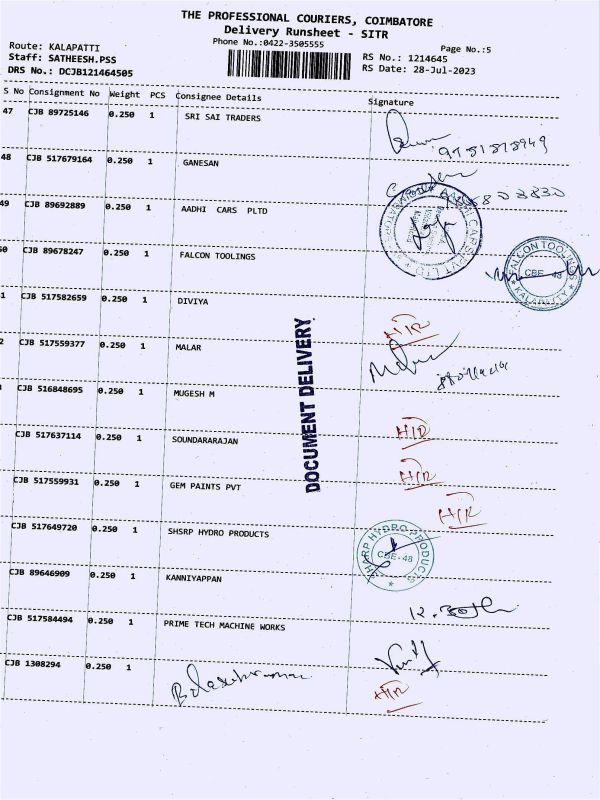 THE PROFESSIONAL COURIERS, COIMBATORE
Delivery Runsheet - SITR
Phone No.:0422-3505555
Page No.:5
Route: KALAPATTI
Staff: SATHEESH.PSS
DRS No.: DCJB121464505
RS No.: 1214645
RS Date: 28-Jul-2023
S No Consignment No Weight PCS Consignee Details Signature
47 CJB 89725146 0.250 1 SRI SAI TRADERS
48 CJB 517679164 0.250 1 GANESAN
49 CJB 89692889 0.250 1 AADHI CARS PLTD
0 CJB 89678247 0.250 1 FALCON TOOLINGS
FALCON TOOLINGS
CBE - 48
KALAPATTY
1 CJB 517582659 0.250 1 DIVIYA
HIR
2 CJB 517559377 0.250 1 MALAR
CJB 516848695 0.250 1 MUGESH M
DOCUMENT DELIVERY
CJB 517637114 0.250 1 SOUNDARARAJAN
HIR
CJB 517559931 0.250 1 GEM PAINTS PVT
HIR
CJB 517649720 0.250 1 SHSRP HYDRO PRODUCTS
SHSRP HYDRO PRODUCTS
CBE - 48
CJB 89646909 0.250 1 KANNIYAPPAN
CJB 517584494 0.250 1 PRIME TECH MACHINE WORKS
CJB 1308294 0.250 1
HIR